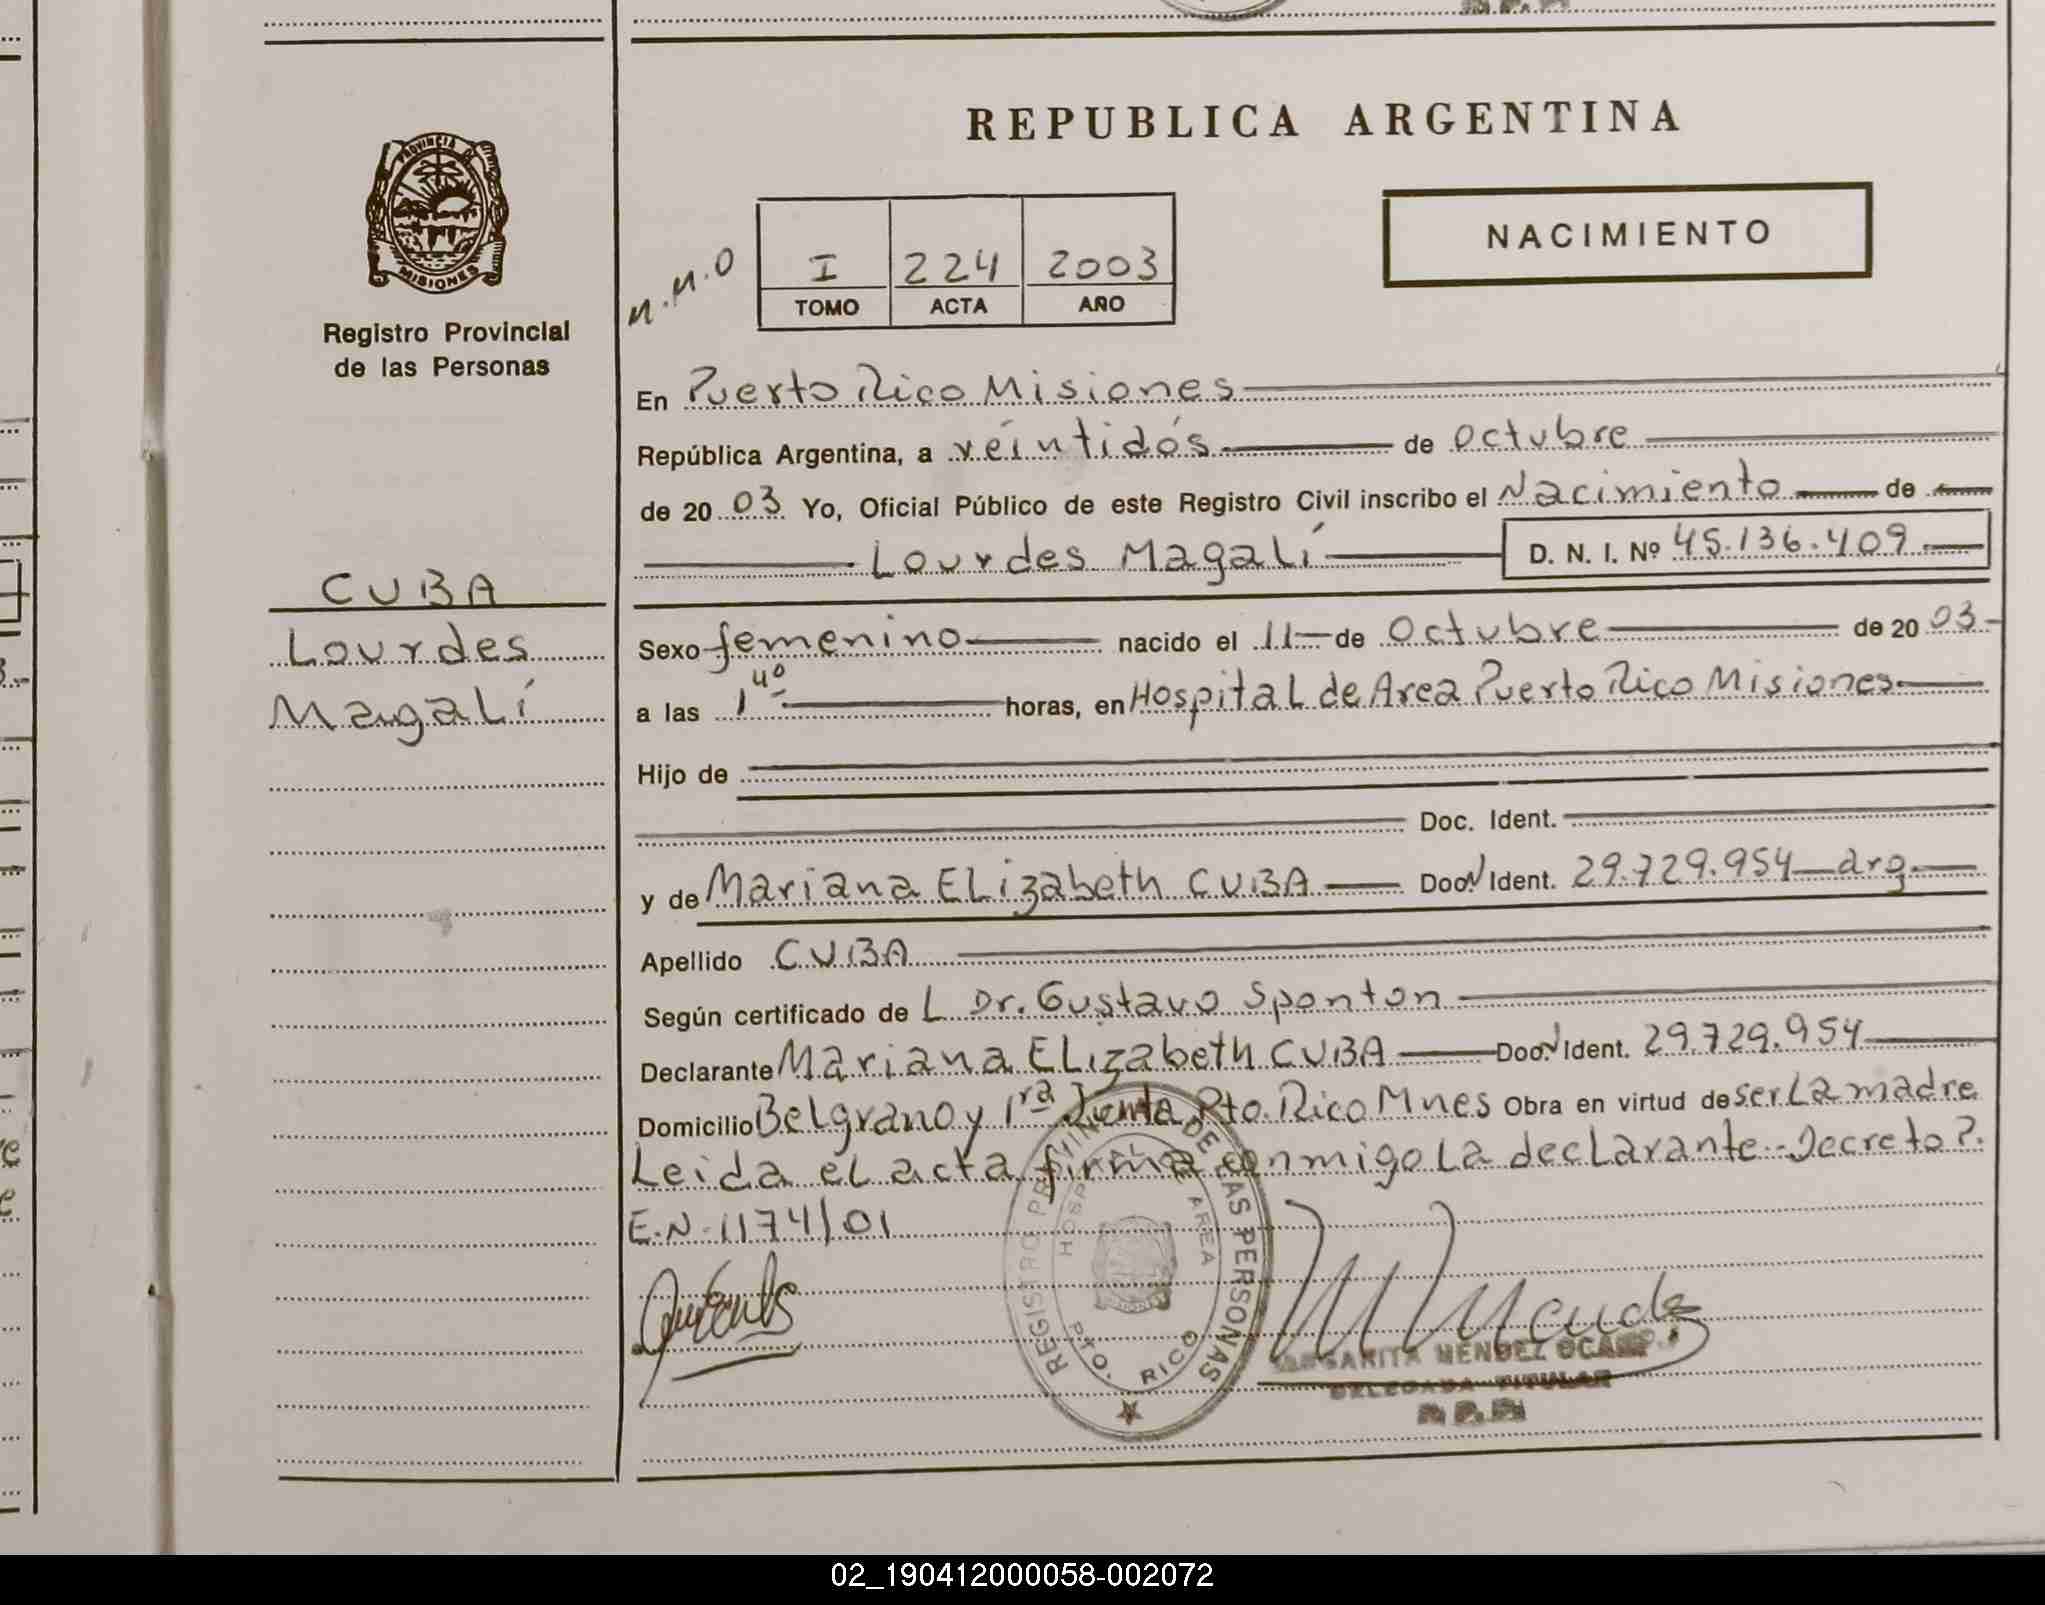 REPUBLICA ARGENTINA
PROVINCIA D
MISIONES
Registro Provincial
de las Personas
N.N.O
I 224 2003
TOMO ACTA AÑO
NACIMIENTO
CUBA
Lourdes
Magalí
En Puerto Rico Misiones
República Argentina, a veintidós de octubre
de 20 03 Yo, Oficial Público de este Registro Civil inscribo el Nacimiento de
Lourdes Magalí D. N. I. Nº 45.136.409
Sexo femenino nacido el 11 de Octubre de 20 03
a las 1 40 horas, en Hospital de Area Puerto Rico Misiones
Hijo de
Doc. Ident.
y de Mariana ELizabeth CUBA Ident. 29.729.954 arg
Apellido CUBA
Según certificado de L Dr. Gustavo Sponton
Declarante Mariana ELizabeth CUBA Ident. 29.729.954
Domicilio Belgrano y 1ra Junta Pto. Rico Mnes Obra en virtud de ser La madre
Leida el acta firma conmigo La declarante - Decreto P.
E.N. 1174/01
REGISTRO PROVINCIAL DE LAS PERSONAS
HOSPITAL AREA
PTO. RICO
MARGARITA MENDEZ OCAMPO
DELEGADA TITULAR
02_190412000058-002072